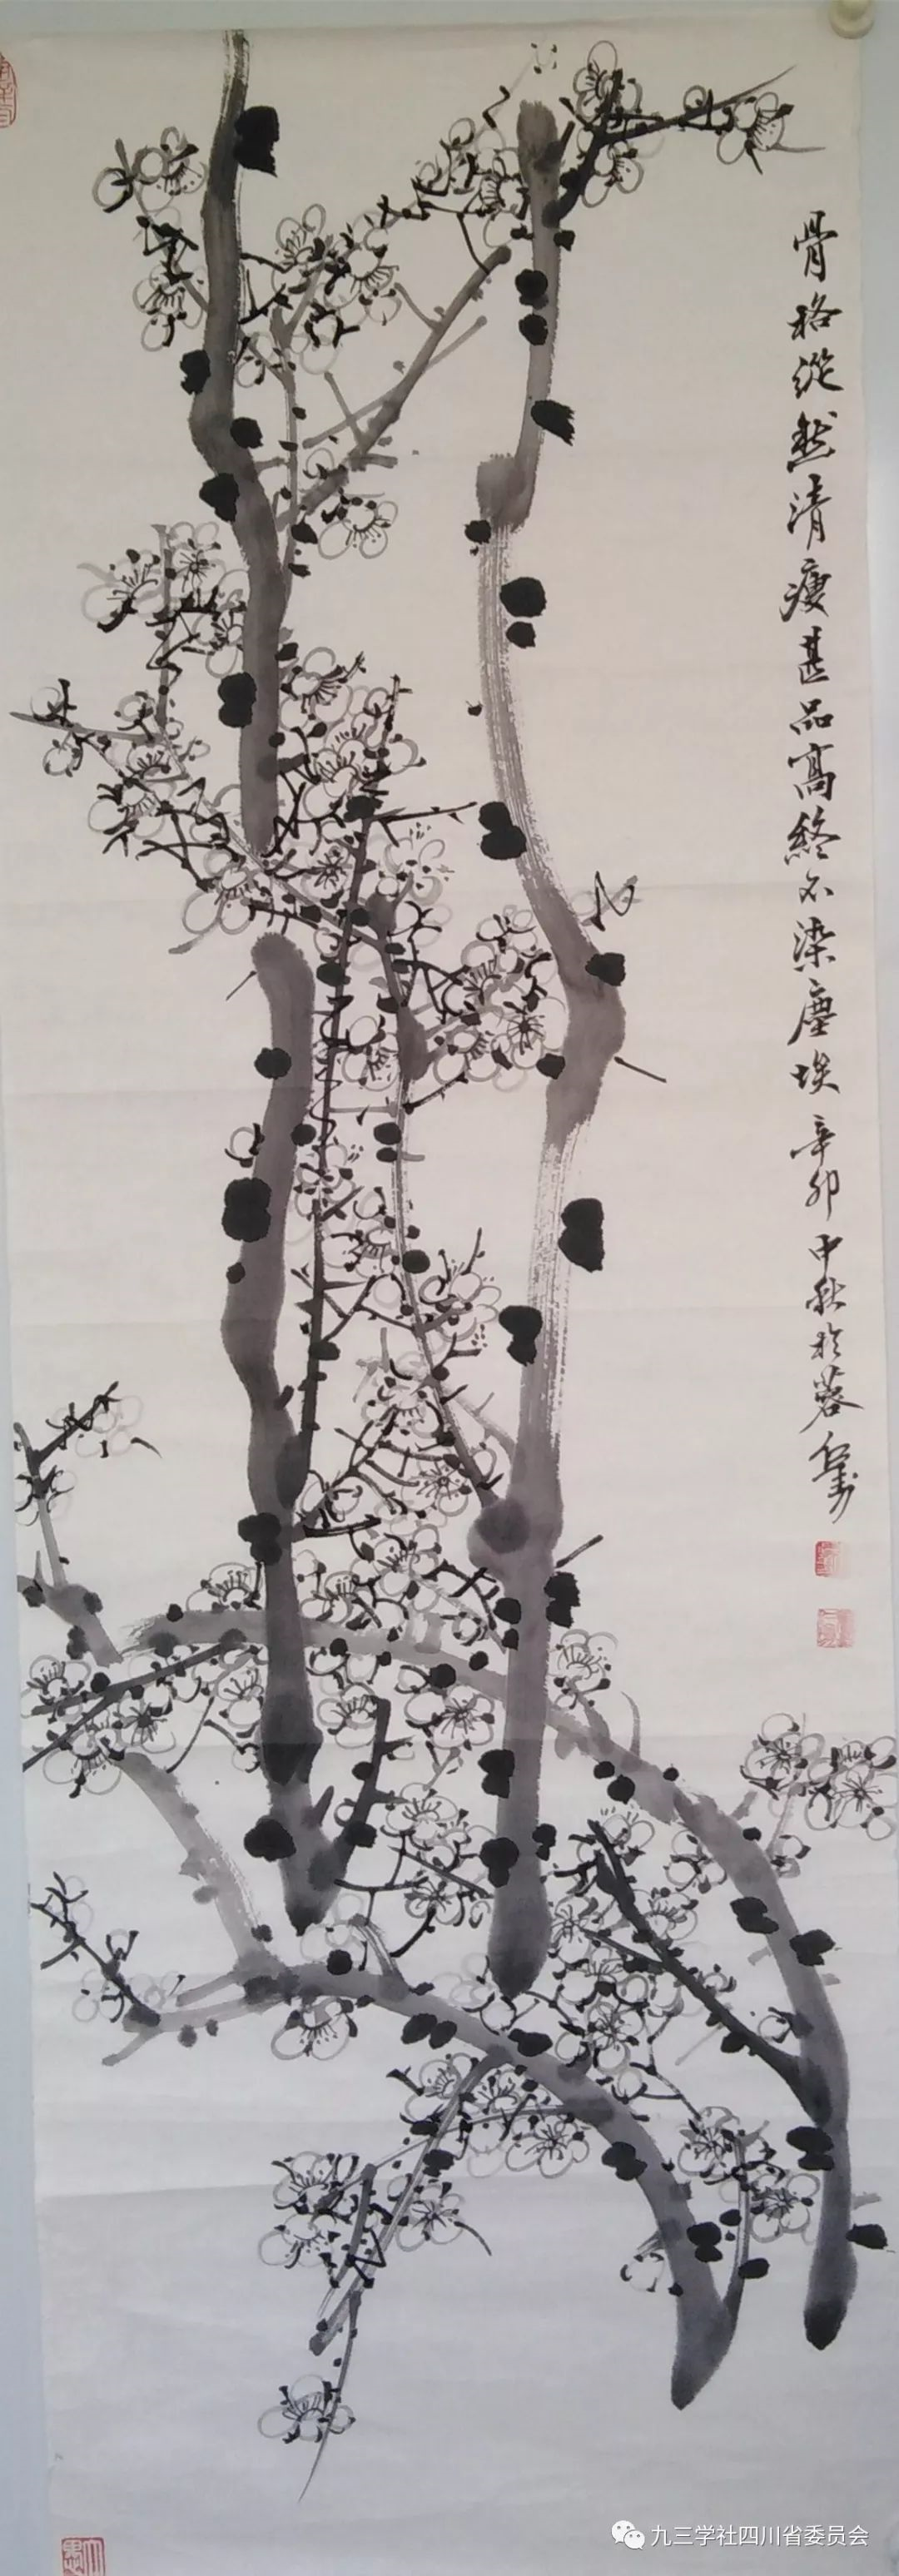 骨格從然清瘦甚品高終不染塵埃辛卯中秋於蓉
九三学社四川省委员会